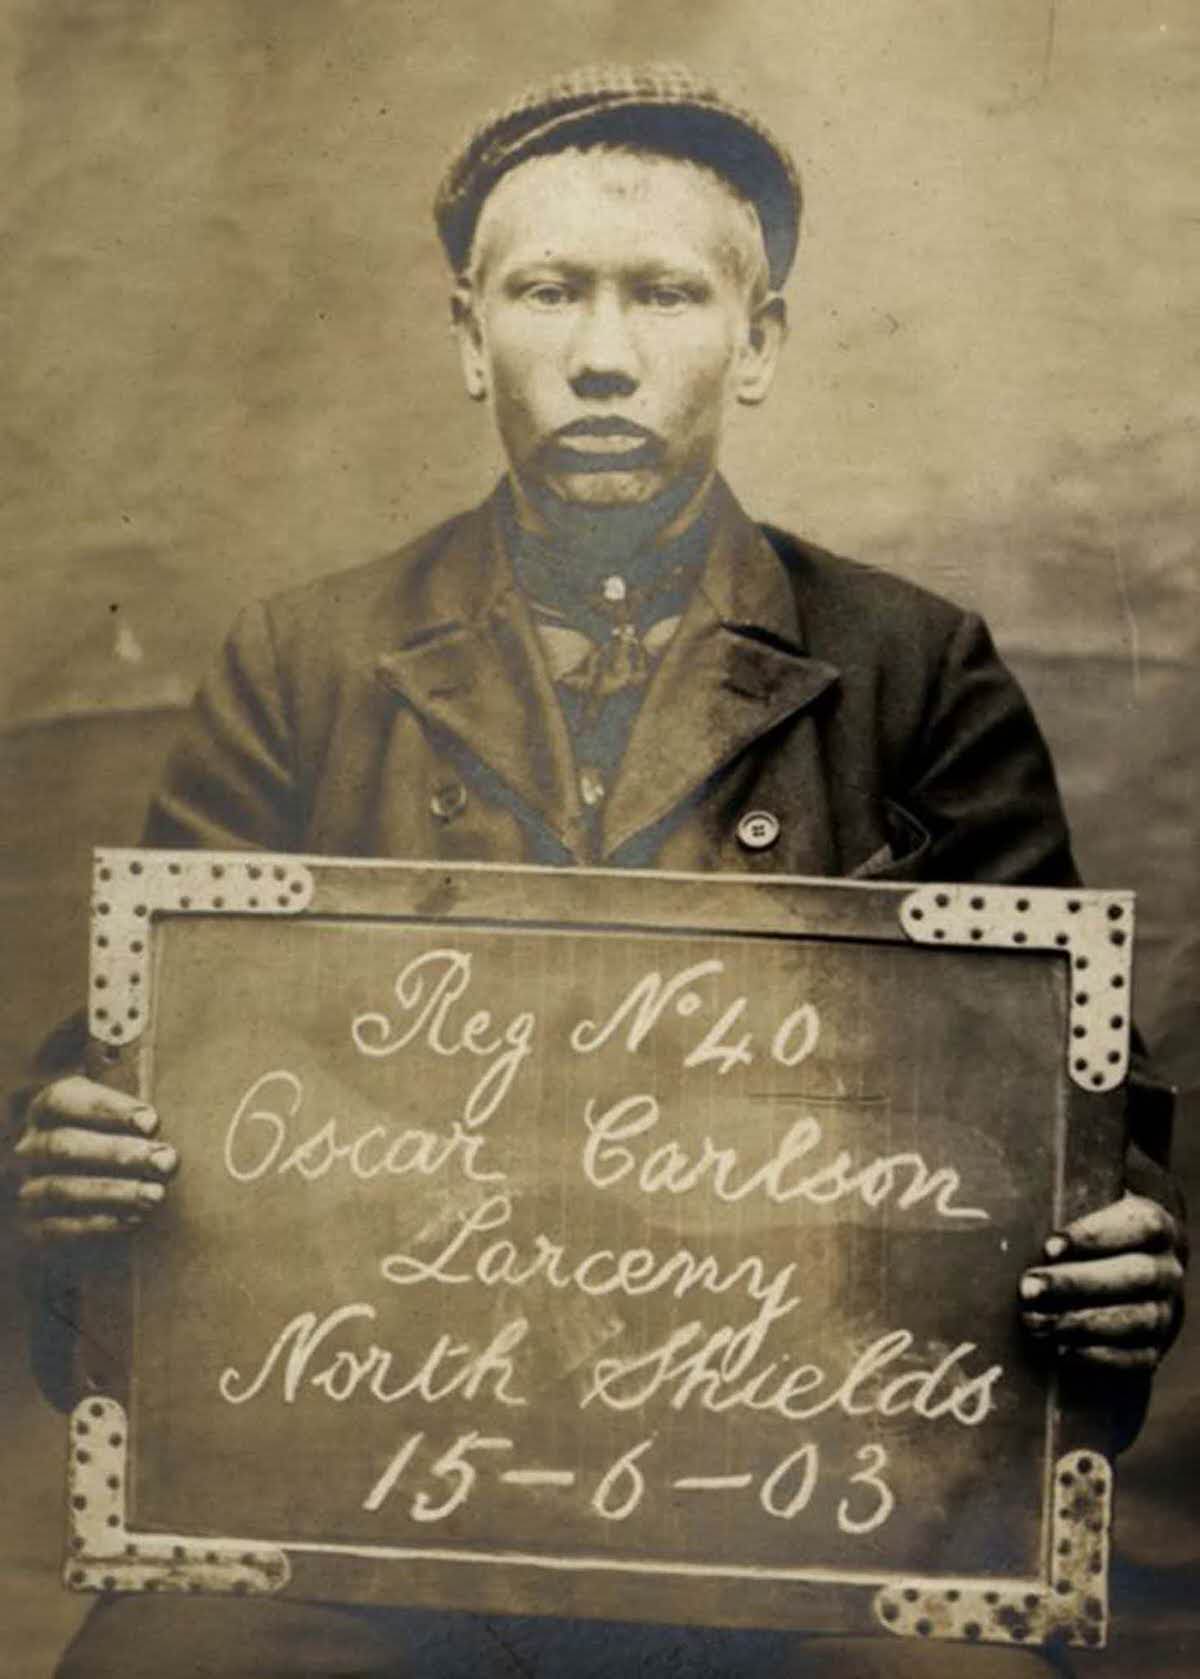 Reg No 40
Oscar Carlson
Larceny
North Shields
15-6-03